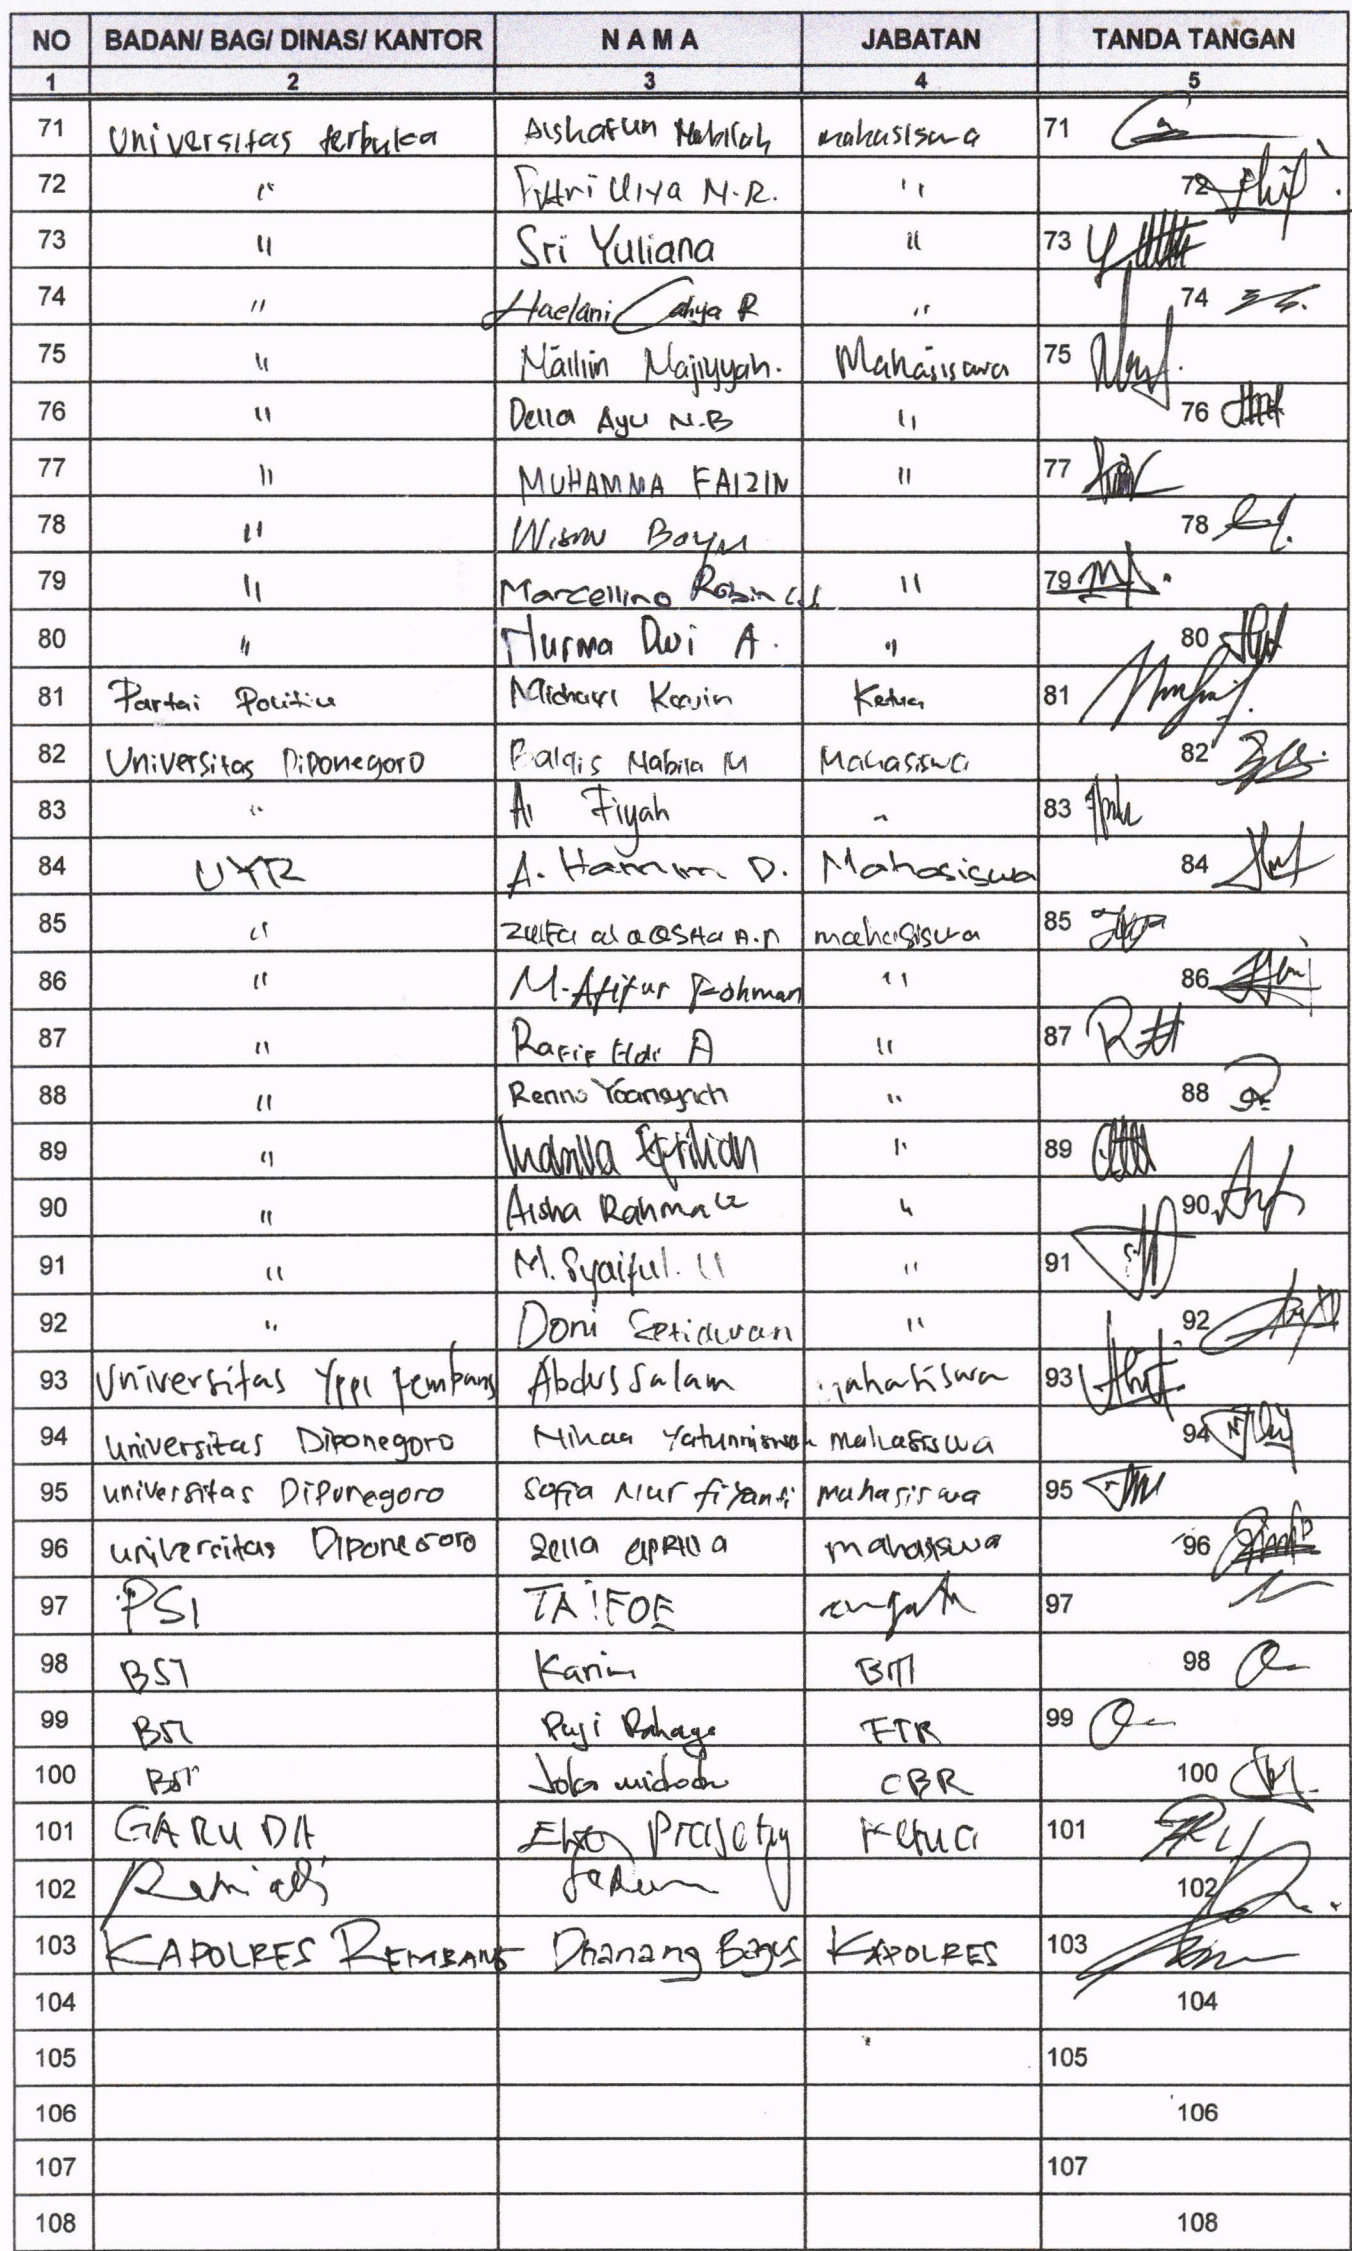 NO BADAN/ BAG/ DINAS/ KANTOR N A M A JABATAN TANDA TANGAN
1 2 3 4 5
71 Universitas terbuka Aishatun Nabilah mahasiswa 71
72 " Fitri Ulya N.R. " 72
73 " Sri Yuliana " 73
74 " Haelani Cahya R " 74
75 " Mailiin Najiyyah. Mahasiswa 75
76 " Della Ayu N.B " 76
77 " MUHAMMA FAIZIN " 77
78 " Wisnu Bayu 78
79 " Marcellino Robin " 79
80 " Nurma Dwi A. " 80
81 Partai Politik Michael Kevin Ketua 81
82 Universitas Diponegoro Balqis Nabila M Mahasiswa 82
83 " Al Fiyah " 83
84 UYR A. Hamim D. Mahasiswa 84
85 " mahasiswa 85
86 " M. Afifur Rohman " 86
87 " Rafif A " 87
88 " Renno " 88
89 " " 89
90 " Aisha Rahma " 90
91 " M. Syaiful. U " 91
92 " Doni Setiawan " 92
93 Universitas Yppi Rembang Abdus Salam mahasiswa 93
94 universitas Diponegoro mahasiswa 94
95 universitas Diponegoro Sofia Nur fiyanti mahasiswa 95
96 universitas Diponegoro Zella APRILIA mahasiswa 96
97 PSI 97
98 BSI Karim BM 98
99 BSI Puji FTR 99
100 BSI Joko widodo CBR 100
101 GARUDA Eko Prasetyo Ketua 101
102 102
103 KAPOLRES REMBANG Dhanang Bagus KAPOLRES 103
104 104
105 105
106 106
107 107
108 108